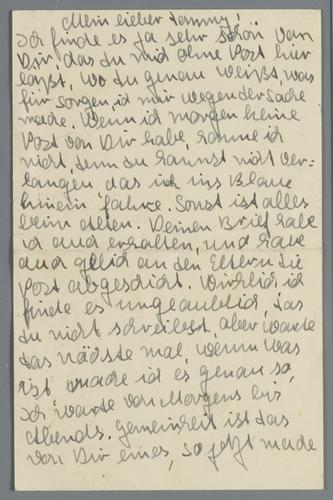 Mein lieber Tommy!
Ich finde es ja sehr schön von
Dir, das du mich ohne Post hier
laßt, wo du genau weißt, was
für sorgen ich mir wegen der Sache
mache. Wenn ich morgen keine
Post von Dir habe, komme ich
nicht, denn du kannst nicht ver-
langen das ich ins Blaue
hinein fahre. Sonst ist alles
beim alten. Deinen Brief habe
ich auch erhalten, und habe
auch gleich an den Eltern die
Post abgeschickt. Wirklich ich
finde es unglaublich, das
du nicht schreibest, aber warte
das nächste mal, wenn was
ist, mache ich es genau so,
Ich warte von Morgens bis
Abends. gemeinheit ist das
von Dir eines, so jetzt mache